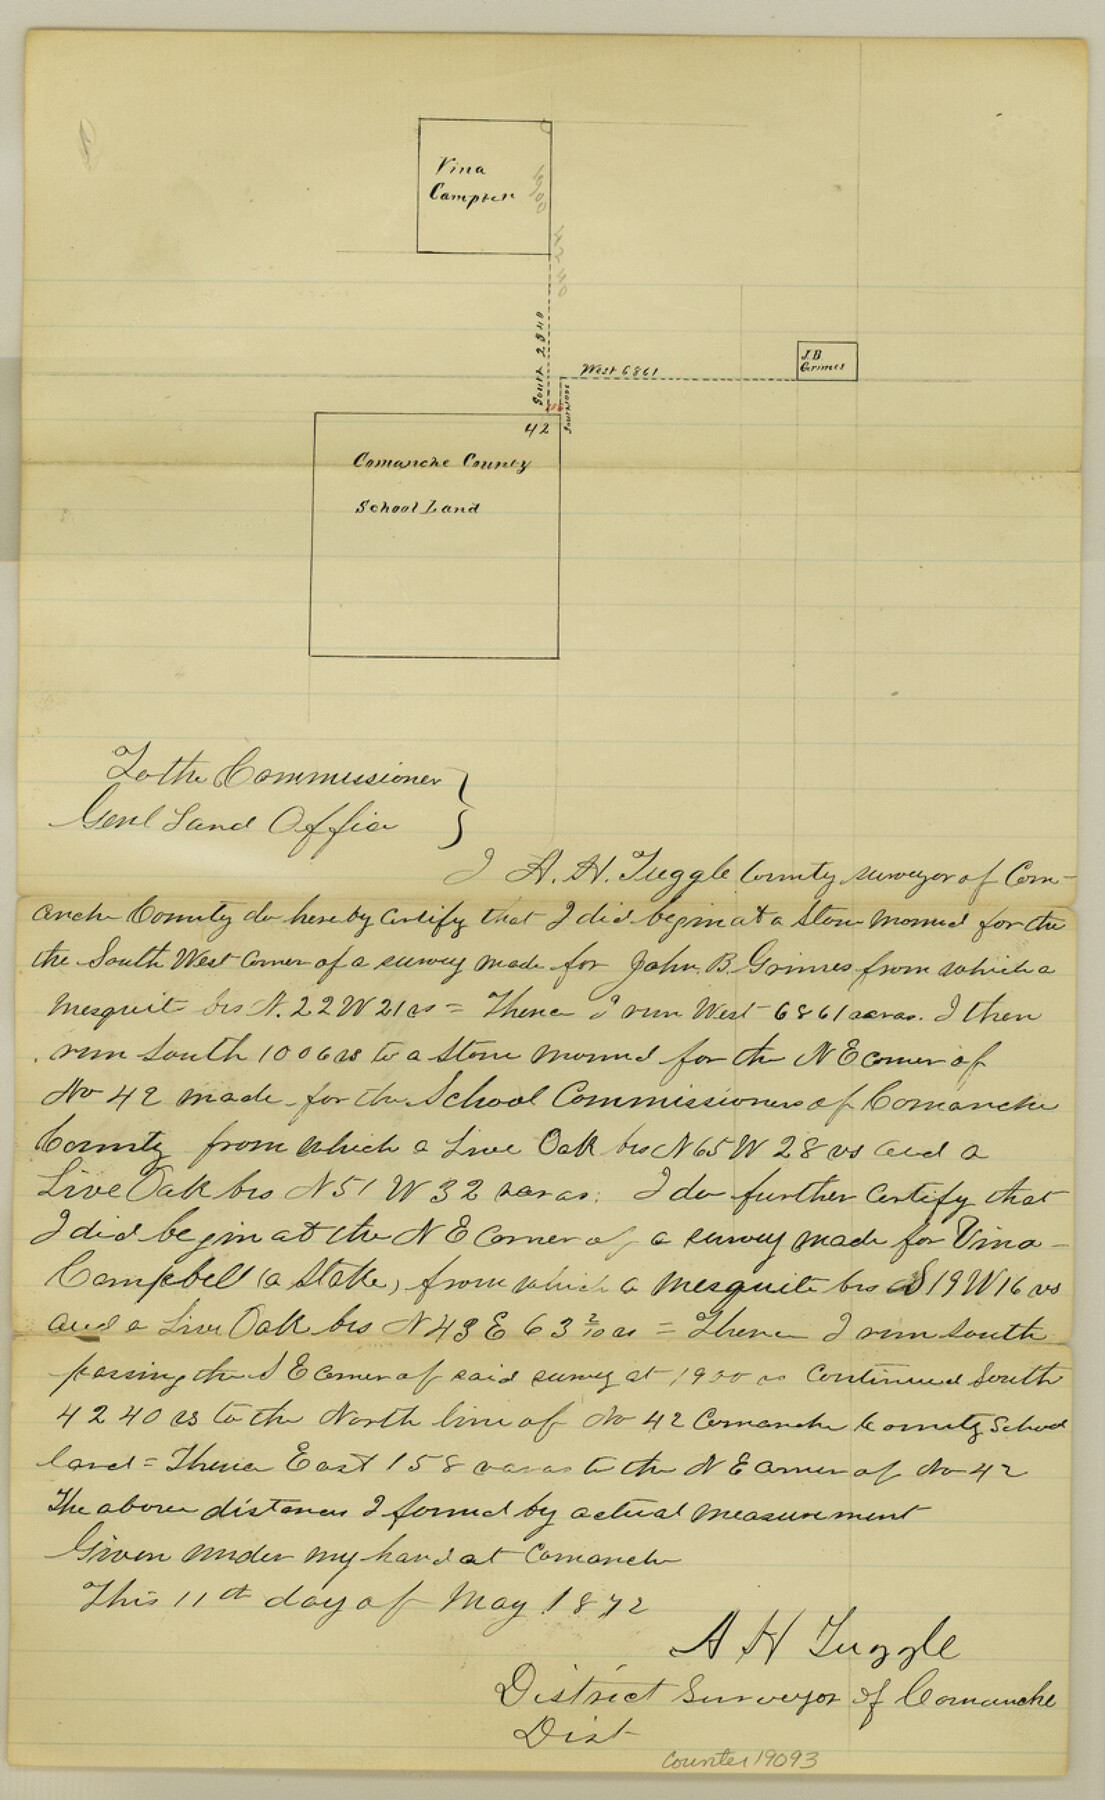 Vina
Campbell
1900
4240
South 2340
West 6861
J.B
Grimes
42
Comanche County
School Land
To the Commissioner
Genl Land Office
I A. H. Tuggle County surveyor of Com-
anche County do hereby Certify that I did begin at a Stone Mound for the
the South West Corner of a survey made for John. B. Grimes from which a
Mesquit brs N. 22 W 21 vs = Thence I run West 6861 varas. I then
run South 1006 vs to a Stone Mound for the N E corner of
No 42 made for the School Commissioners of Comanche
County from which a Live Oak brs N 65 W 28 vs and a
Live Oak brs N 51 W 32 varas. I do further Certify that
I did begin at the N E Corner of a survey made for Vina
Campbell (a Stake) from which a Mesquite brs S 19 W 16 vs
and a Live Oak brs N 43 E 63 2/10 vs = Thence I run South
passing the S E Corner of said survey at 1900 vs Continued South
4240 vs to the North line of No 42 Comanche County School
land = Thence East 158 varas to the N E Corner of No 42
The above distances I found by actual Measurement
Given under my hand at Comanche
This 11th day of May 1872
A H Tuggle
District Surveyor of Comanche
Dist
Counter 19093